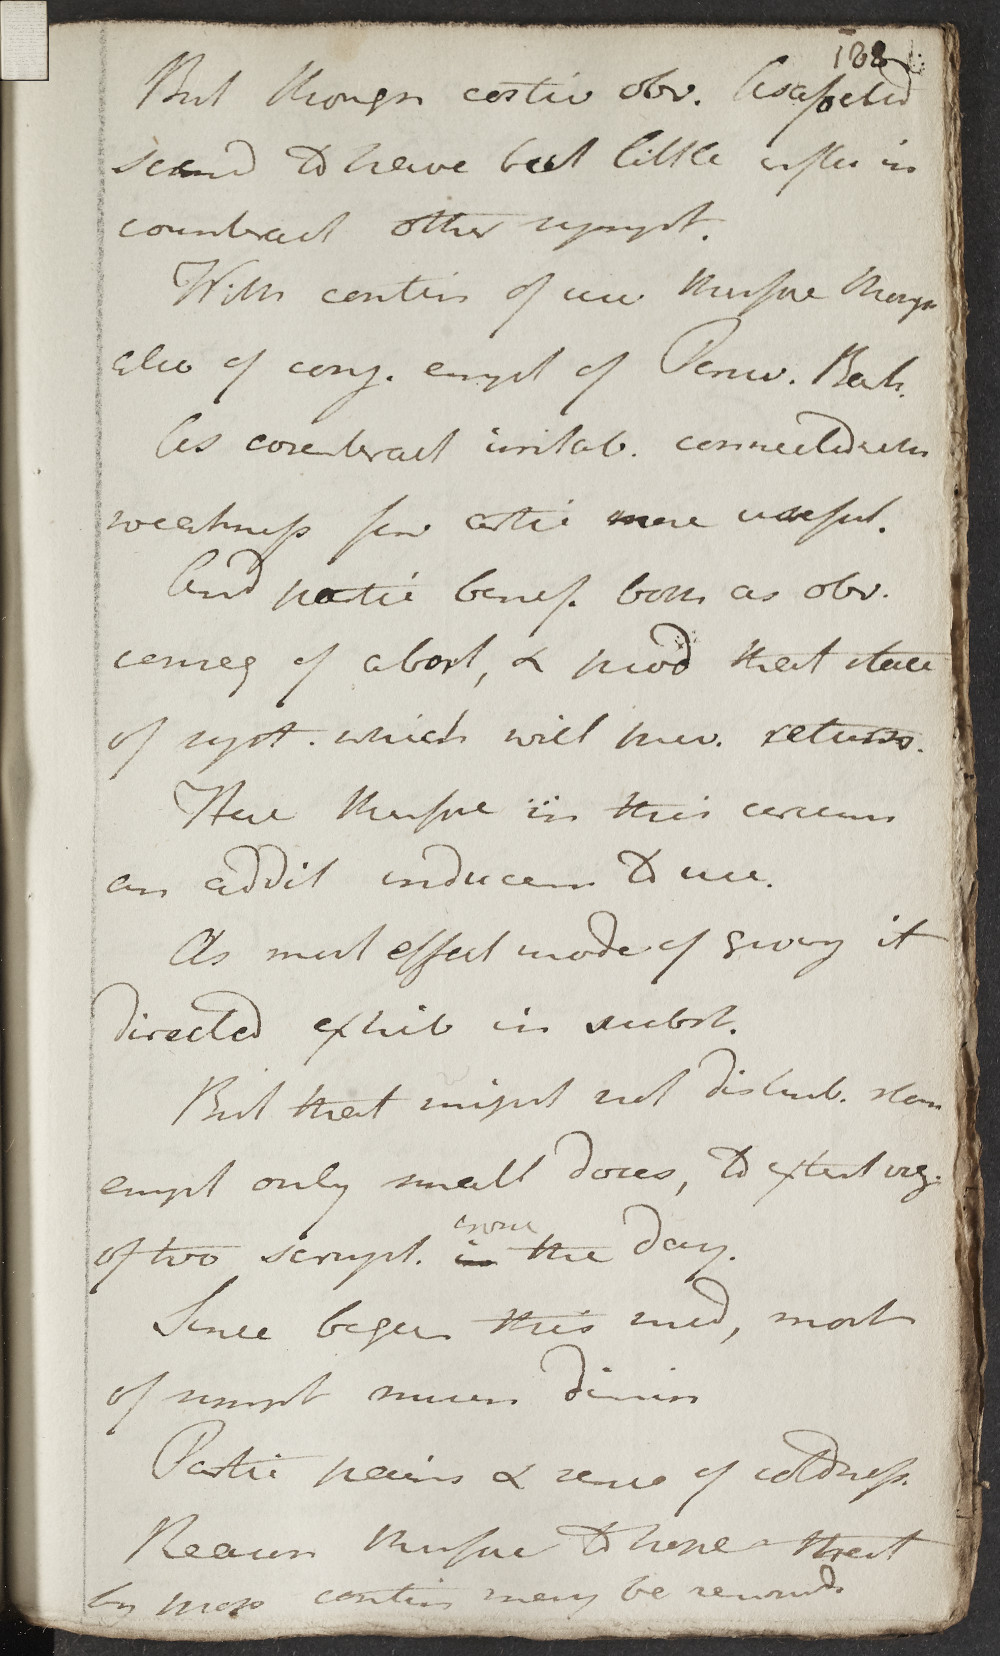 188
But though costiv obv. Asafoetid
seemd to have but little influ in
counteract other sympt.
With contin of use therefore though
also of conj. empt of Peruv. Bark.
As counteract irritab. connected with
weakness few artic more useful.
And partic benef. both as obv.
conseq of abort, & prod that state
of syst. which will prev. returns.
Here therefore in this circum
an addit inducem to use.
As most effect mode of giving it
directed exhib in subst.
But that might not disturb. stom
empt only small doses, to extent
of two scrupl. in the day.
Since begun this med, most
of sympt much dimin
Partic pains & sense of coldness.
Reason therefore to hope that
by more contin may be removd.